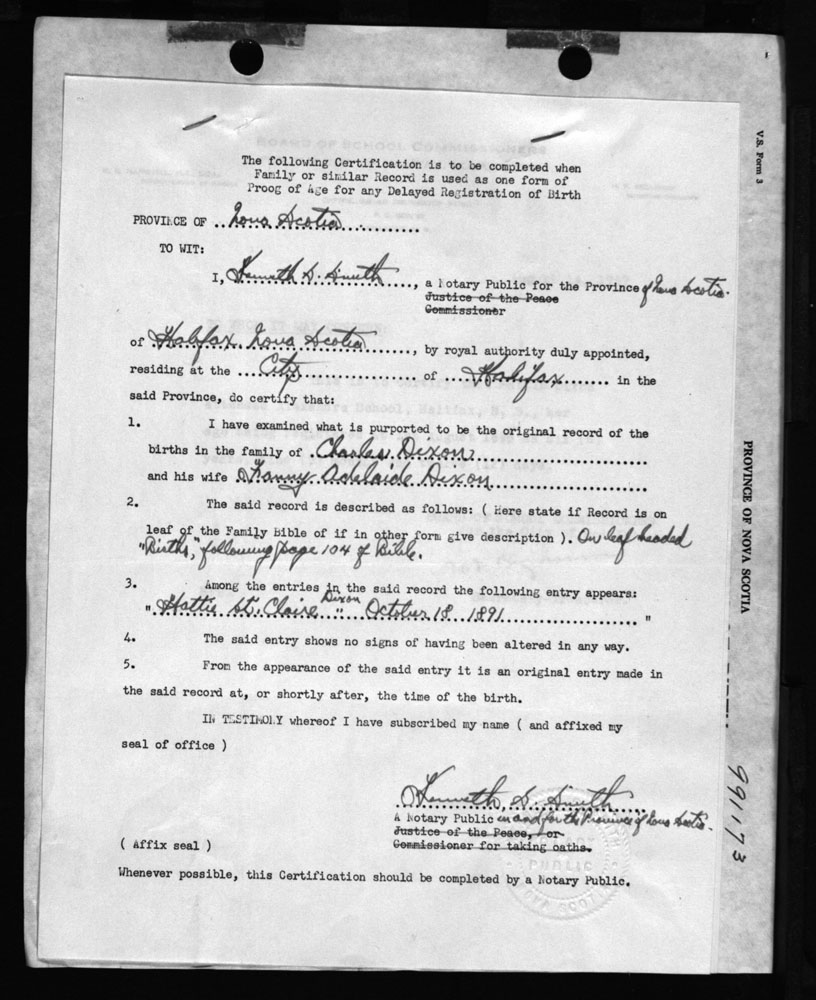 The following Certification is to be completed when
Family or similar Record is used as one form of
Proog of Age for any Delayed Registration of Birth
PROVINCE OF ..Nova Scotia..............
TO WIT:
I, Kenneth S. Smith....., a Notary Public for the Province of Nova Scotia.
Justice of the Peace
Commissioner
of Halifax, Nova Scotia........, by royal authority duly appointed,
residing at the ...City................. of ....Halifax........ in the
said Province, do certify that:
1. I have examined what is purported to be the original record of the
births in the family of .Charles Dixon............................
and his wife .Fanny Adelaide Dixon.........................
2. The said record is described as follows: ( Here state if Record is on
leaf of the Family Bible of if in other form give description ). On leaf headed
"Births," following page 104 of Bible.
3. Among the entries in the said record the following entry appears:
Dixon
" .Hattie St. Claire " October 18 1891...................... "
4. The said entry shows no signs of having been altered in any way.
5. From the appearance of the said entry it is an original entry made in
the said record at, or shortly after, the time of the birth.
IN TESTIMONY whereof I have subscribed my name ( and affixed my
seal of office )
Kenneth S. Smith
A Notary Public in and for the Province of Nova Scotia.
Justice of the Peace, or
Commissioner for taking oaths.
( Affix seal )
PUBLIC
Whenever possible, this Certification should be completed by a Notary Public.
V.S. Form 3
PROVINCE OF NOVA SCOTIA
991173
BOARD OF SCHOOL COMMISSIONERS